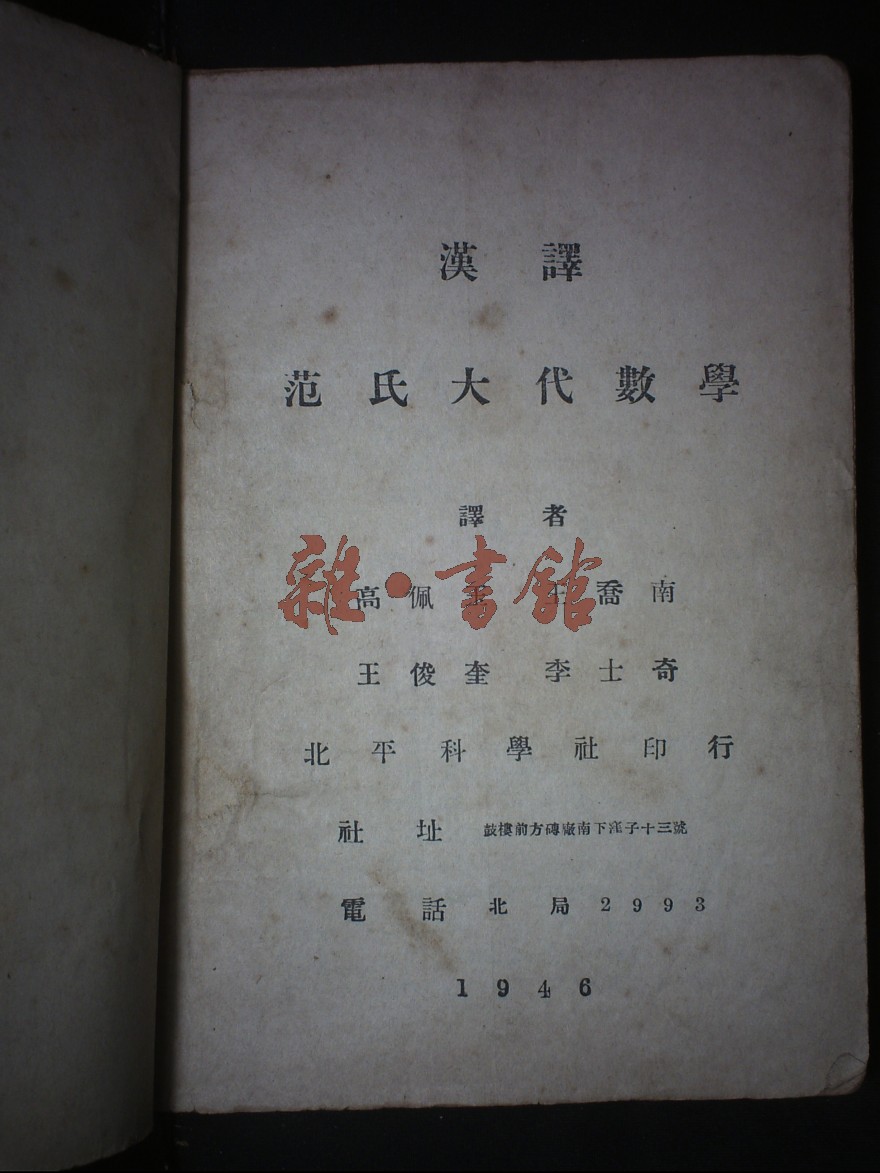 漢譯
范氏大代數學
譯者
高佩玉 王喬南
王俊奎 李士奇
北平科學社印行
社址 鼓樓前方磚廠南下窪子十三號
電話 北局 2993
1946
雜·書館